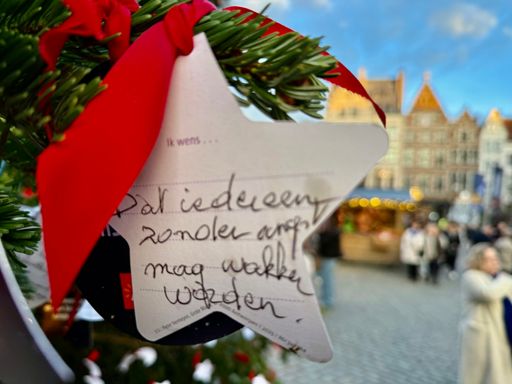 Ik wens....
Dat iedereen
zonder angst
mag wakker
worden.